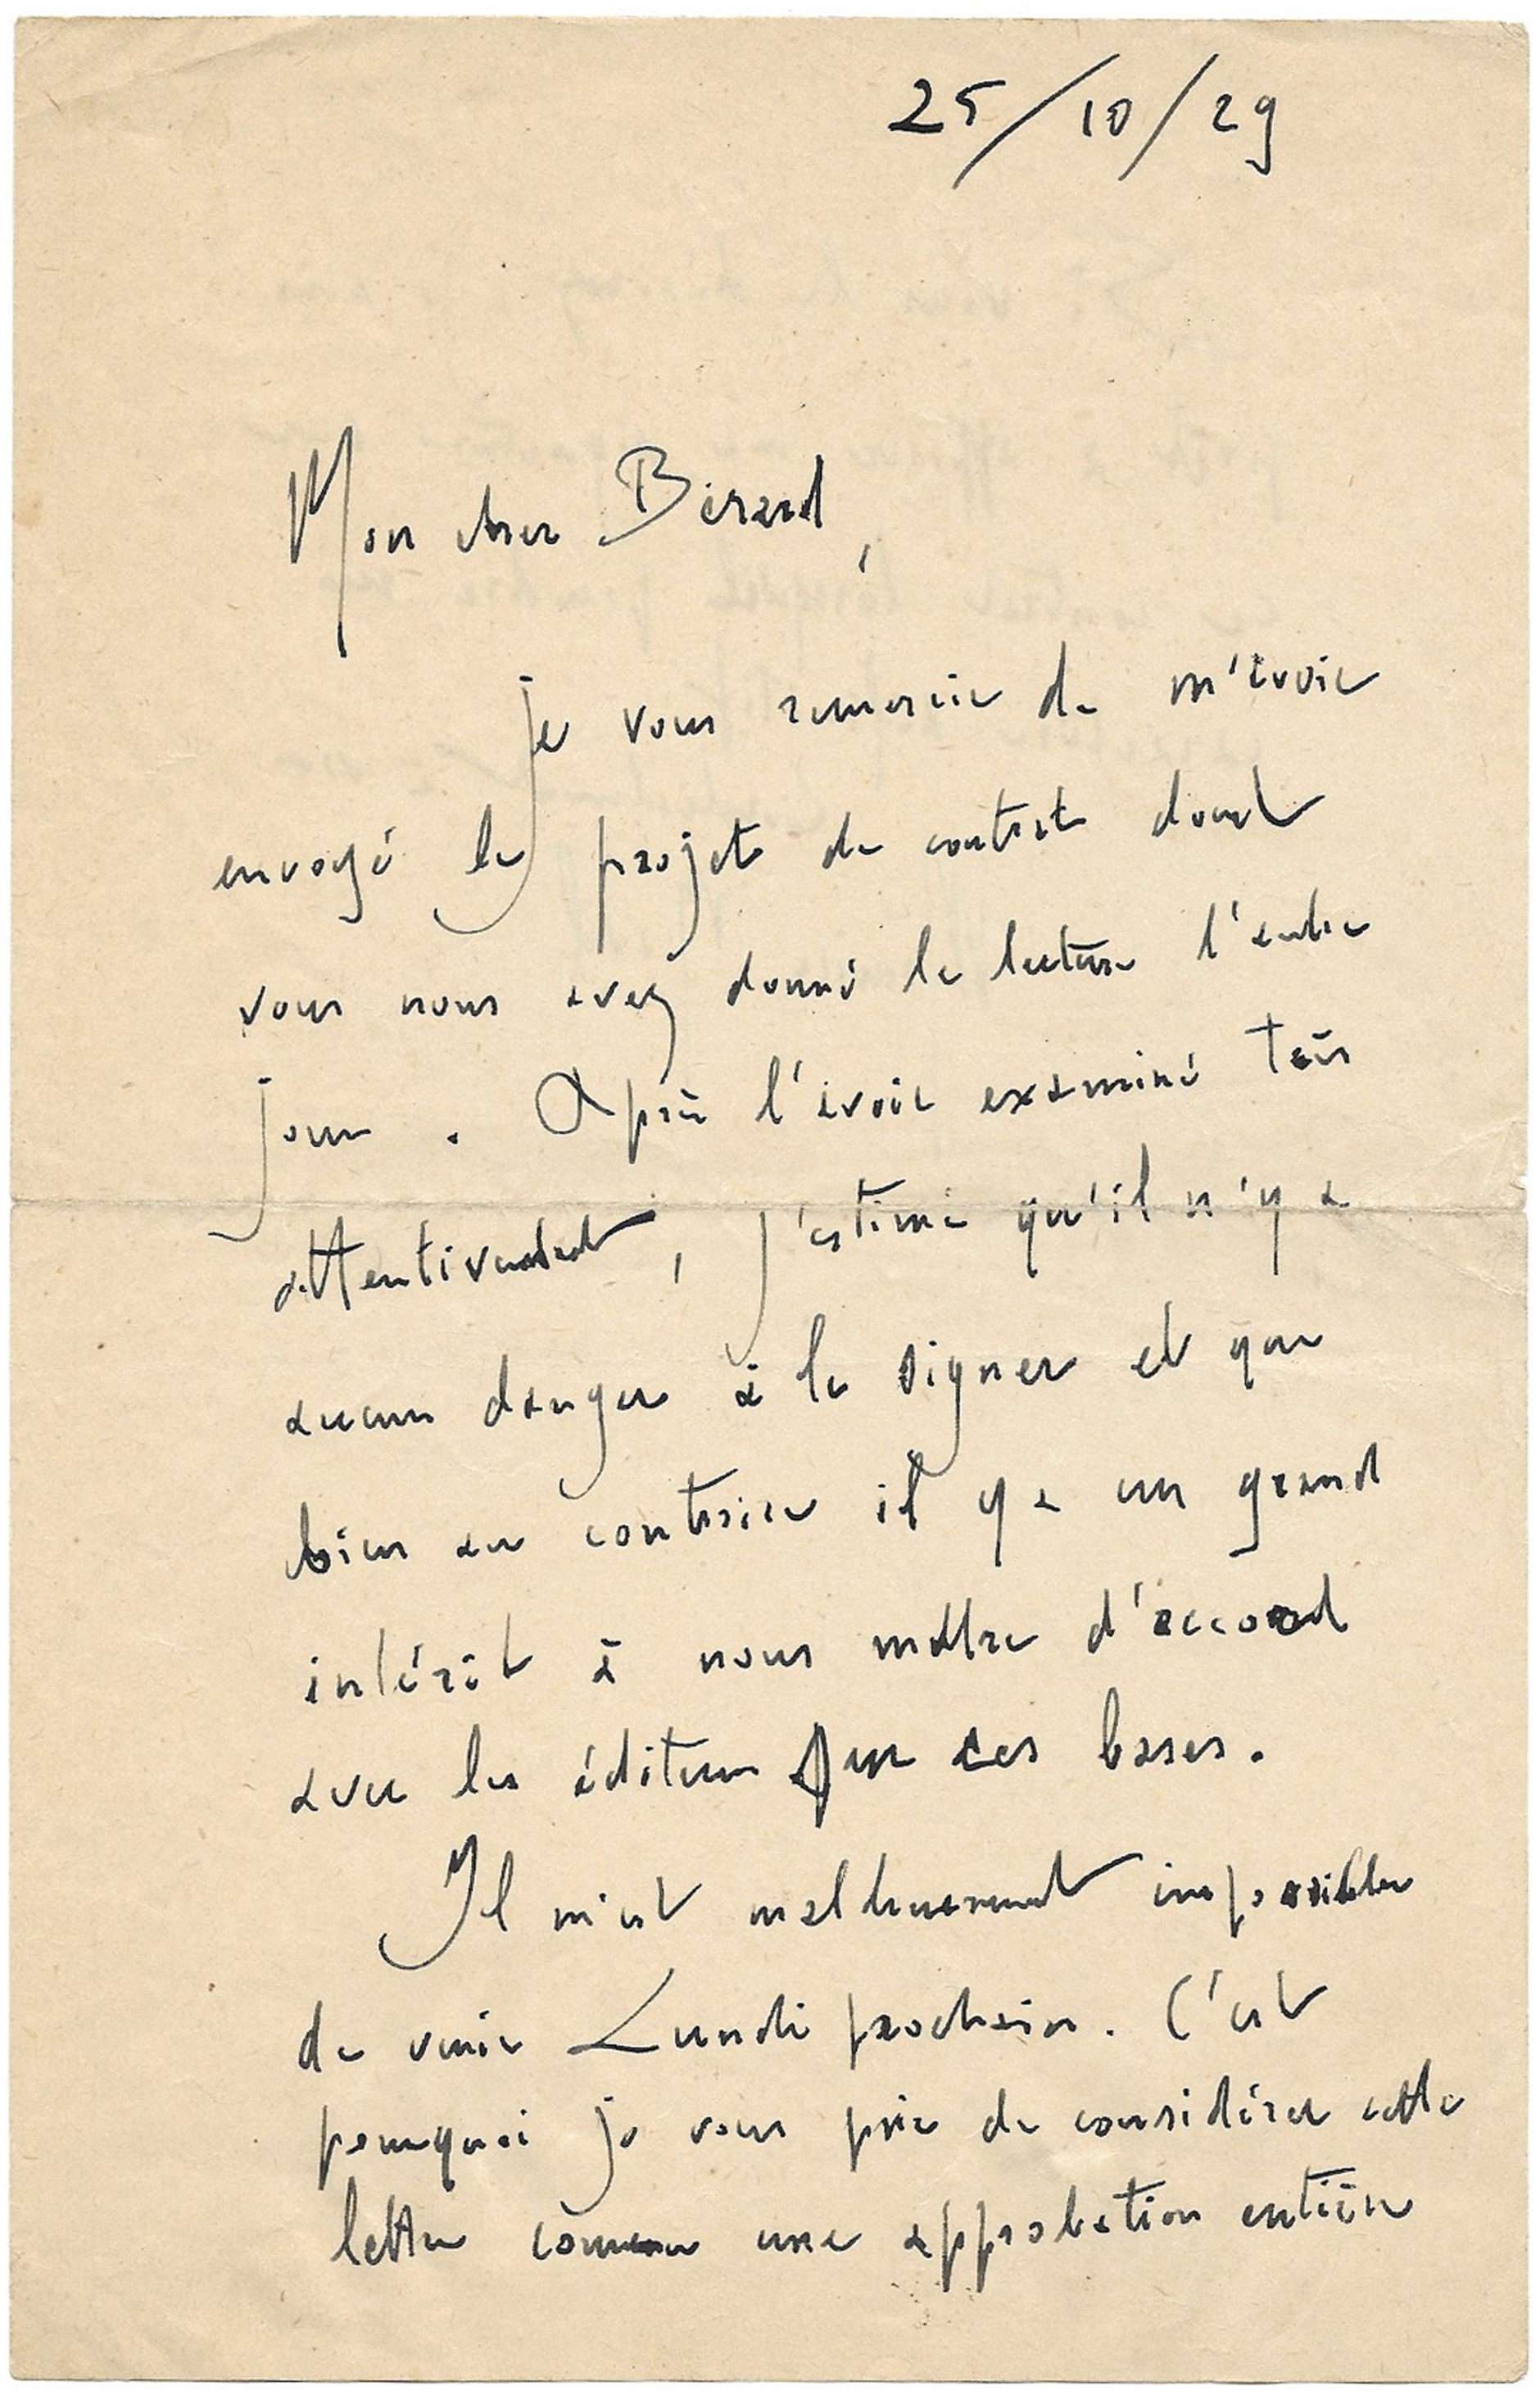 25/10/29
Mon cher Bérard,
je vous remercie de m'avoir
envoyé le projet de contrat dont
vous nous avez donné la lecture l'autre
jour. Après l'avoir examiné très
attentivement, j'estime qu'il n'y a
aucun danger à le signer et que
bien au contraire il y a un grand
intérêt à nous mettre d'accord
avec les éditeurs sur ces bases.
Il m'est malheureusement impossible
de venir Lundi prochain. C'est
pourquoi je vous prie de considérer cette
lettre comme une approbation entière